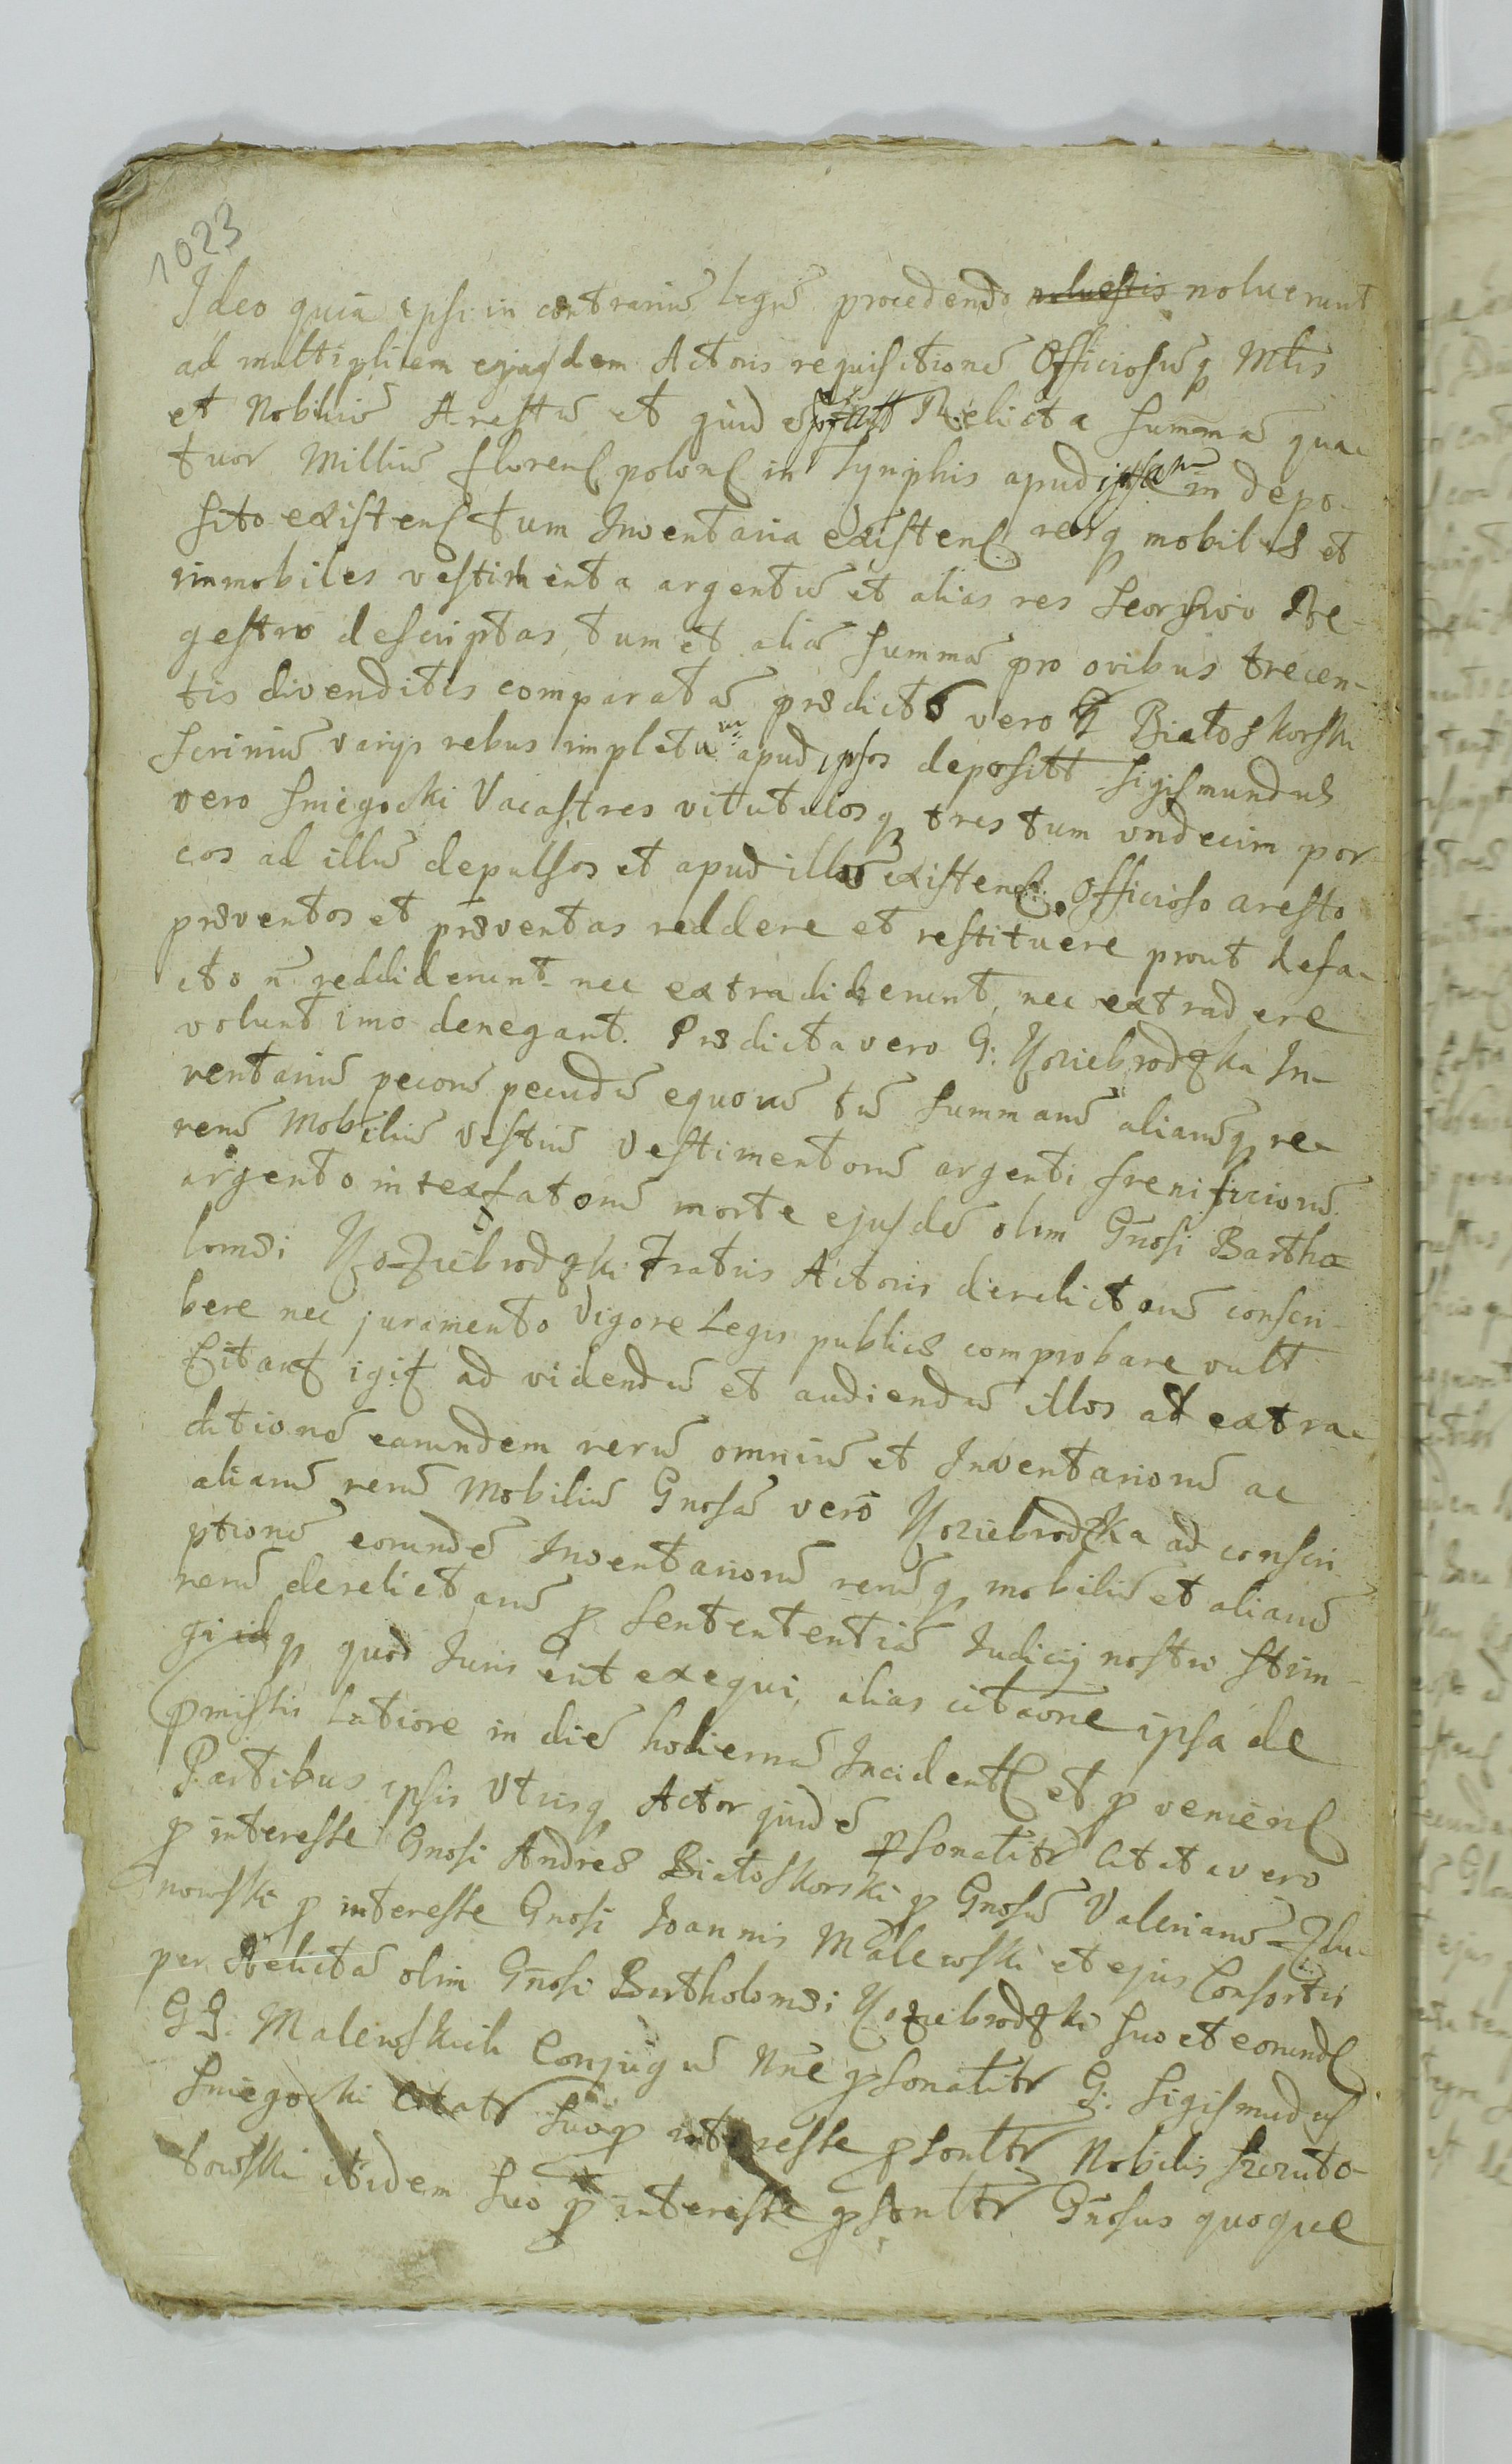 1023
Ideo quia ipsi in contrariū Legū procedendo noluerunt
ad multiplicem ejusdem Actoris requisitionē Officiosumq Mtis
et Nobiliū Arestū et quidē Relicta summā qua-
tuor Milliū floren polon in Tynphis apud ipsam in depo-
sito existen tum Inventaria existen resq mobiles et
immobiles vestimenta argentū et alias res seorsivo Re-
gestro descriptas, tum et aliā summā pro ovibus trecen-
tis divenditis comparatā prædict vero G Białoskorski
scriniū varys rebus impletum apud ipsos depositt Sigismundus
vero Sniegocki Vacas tres vitutulosq tres tum undecim por
cos ad illū depulsos et apud illū existen Officioso aresto
præventos et præventas reddere et restituere prout de fa-
cto n̄ reddiderunt nec extradiderunt, nec extradere
volunt imo denegant. Prædicta vero G: Koziebrodzka In-
ventariū pecorū pecudū equorū tū summarū aliarūq re-
rerū Mobiliū vestiū vestimentorū argenti frenificiorū
argento intextatorū morte ejusdē olim Gnosi Bartho
lomæi Koziebrodzki Fratris Actoris derelictarū conscri-
bere nec juramento vigore Legis publicæ comprobare vult
Citant igit ad videndū et audiendū illos ad extra-
ditionē earundem rerū omniū et Inventariorū ac
aliarū rerū Mobiliū Gnosā vero Koziebrodzka ad conscri-
ptionē eorundē Inventariorū rerūq mobiliū et aliarū
rerū derelictarū p sentententiā Iudicij nostri strin-
gi idq quod Iuris erit exequi, alias citaōne ipsa de
pmissis Latiore in diē hodiernā Incident et p venien
Partibus ipsis Utrisq Actor quidē psonalitr Citati vero
p interesse Gnosi Andreæ Białoskorski p Gnosū Valerianū
nowski p interesse Gnosi Ioannis Malewski et ejus Consortis
per Relictā olim Gnosi Bartholomæi Koziebrodzki suo et eorund
GG. Malewskich Conjugū Nne psonalitr G: Sigismudus
Sniegocki suo p interesse psonltr Nobilis
towski itidem suo p interesse psonltr Gnosus quoque